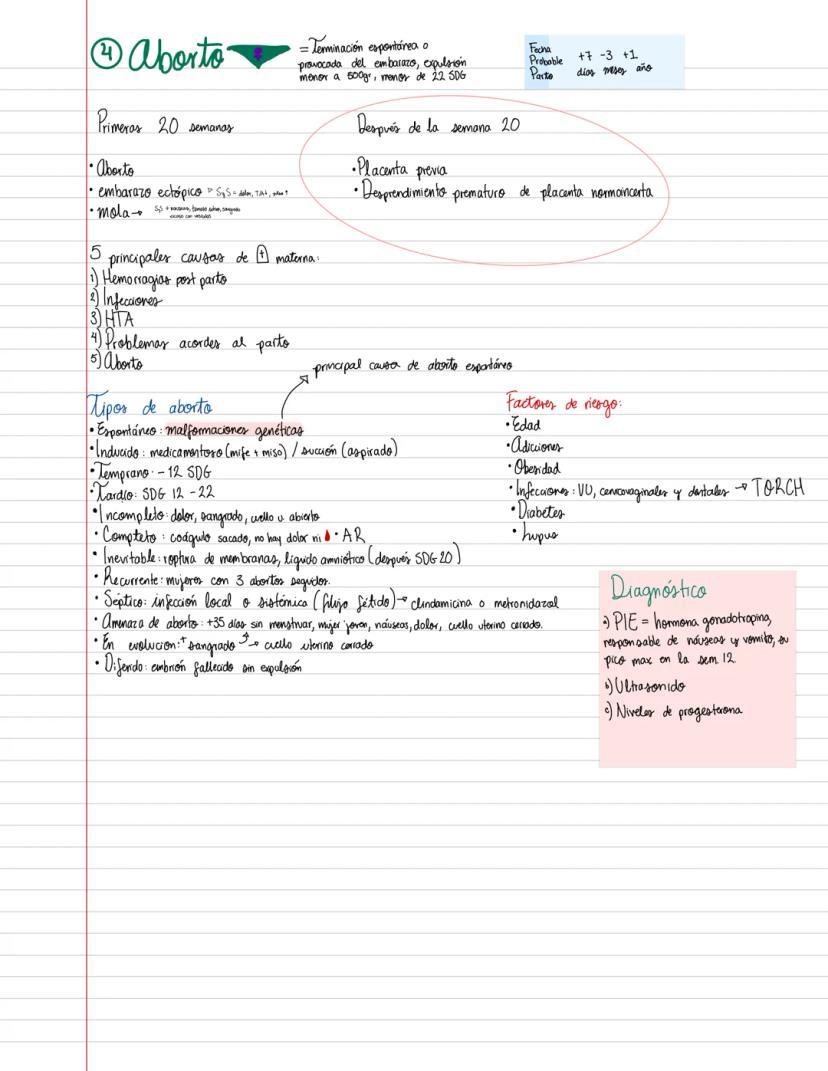 4 Aborto
= Terminación espontánea o
provocada del embarazo, expulsión
menor a 500gr, menor de 22 SDG
Fecha
Probable
Parto
+7 -3 +1
días meses año
Primeras 20 semanas
• Aborto
• embarazo ectópico
• mola →
Después de la semana 20
• Placenta previa
• Desprendimiento prematuro de placenta normoincerta
5 principales causas de materna:
1) Hemorragias post parto
2) Infecciones
3) HTA
4) Problemas acordes al parto
5) Aborto
principal causa de aborto espontáneo
Tipos de aborto
• Espontáneo: malformaciones genéticas
• Inducido: medicamentoso (mife + miso) / succión (aspirado)
• Temprano: - 12 SDG
• Tardío: SDG 12 - 22
• Incompleto: dolor, sangrado, cuello u. abierto
• Completo: coágulo sacado, no hay dolor ni • AR
• Inevitable: roptura de membranas, líquido amniótico (después SDG 20)
• Recurrente: mujeres con 3 abortos seguidos.
• Séptico: infección local o sistémica (flujo fétido) → clindamicina o metronidazol
• Amenaza de aborto: +35 días sin menstruar, mujer joven, náuseas, dolor, cuello uterino cerrado.
• En evolución: + sangrado → cuello uterino cerrado
• Diferido: embrión fallecido sin expulsión
Factores de riesgo:
• Edad
• Adicciones
• Obesidad
• Infecciones: VU, cervicovaginales y dentales → TORCH
• Diabetes
• Lupus
Diagnóstico
a) PIE = hormona gonadotropina,
responsable de náuseas y vomito, su
pico max en la sem 12.
b) Ultrasonido
c) Niveles de progesterona